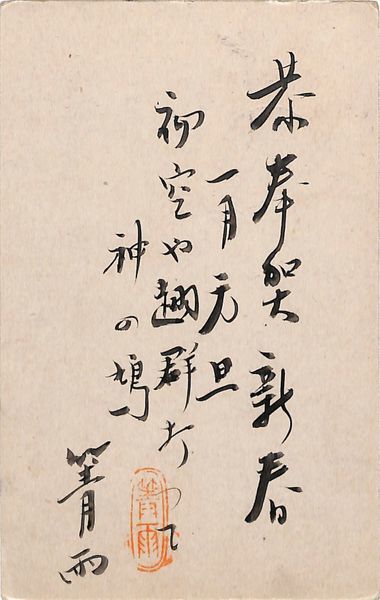 恭奉賀新春
一月元旦
初空や翅群打つて
神の鳩
箐雨
箐雨